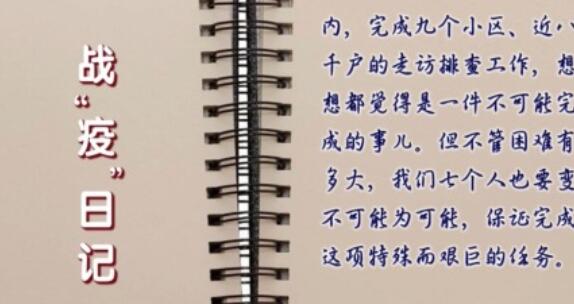 战“疫”日记
内，完成九个小区、近八
千户的走访排查工作，想
想都觉得是一件不可能完
成的事儿。但不管困难有
多大，我们七个人也要变
不可能为可能，保证完成
这项特殊而艰巨的任务。